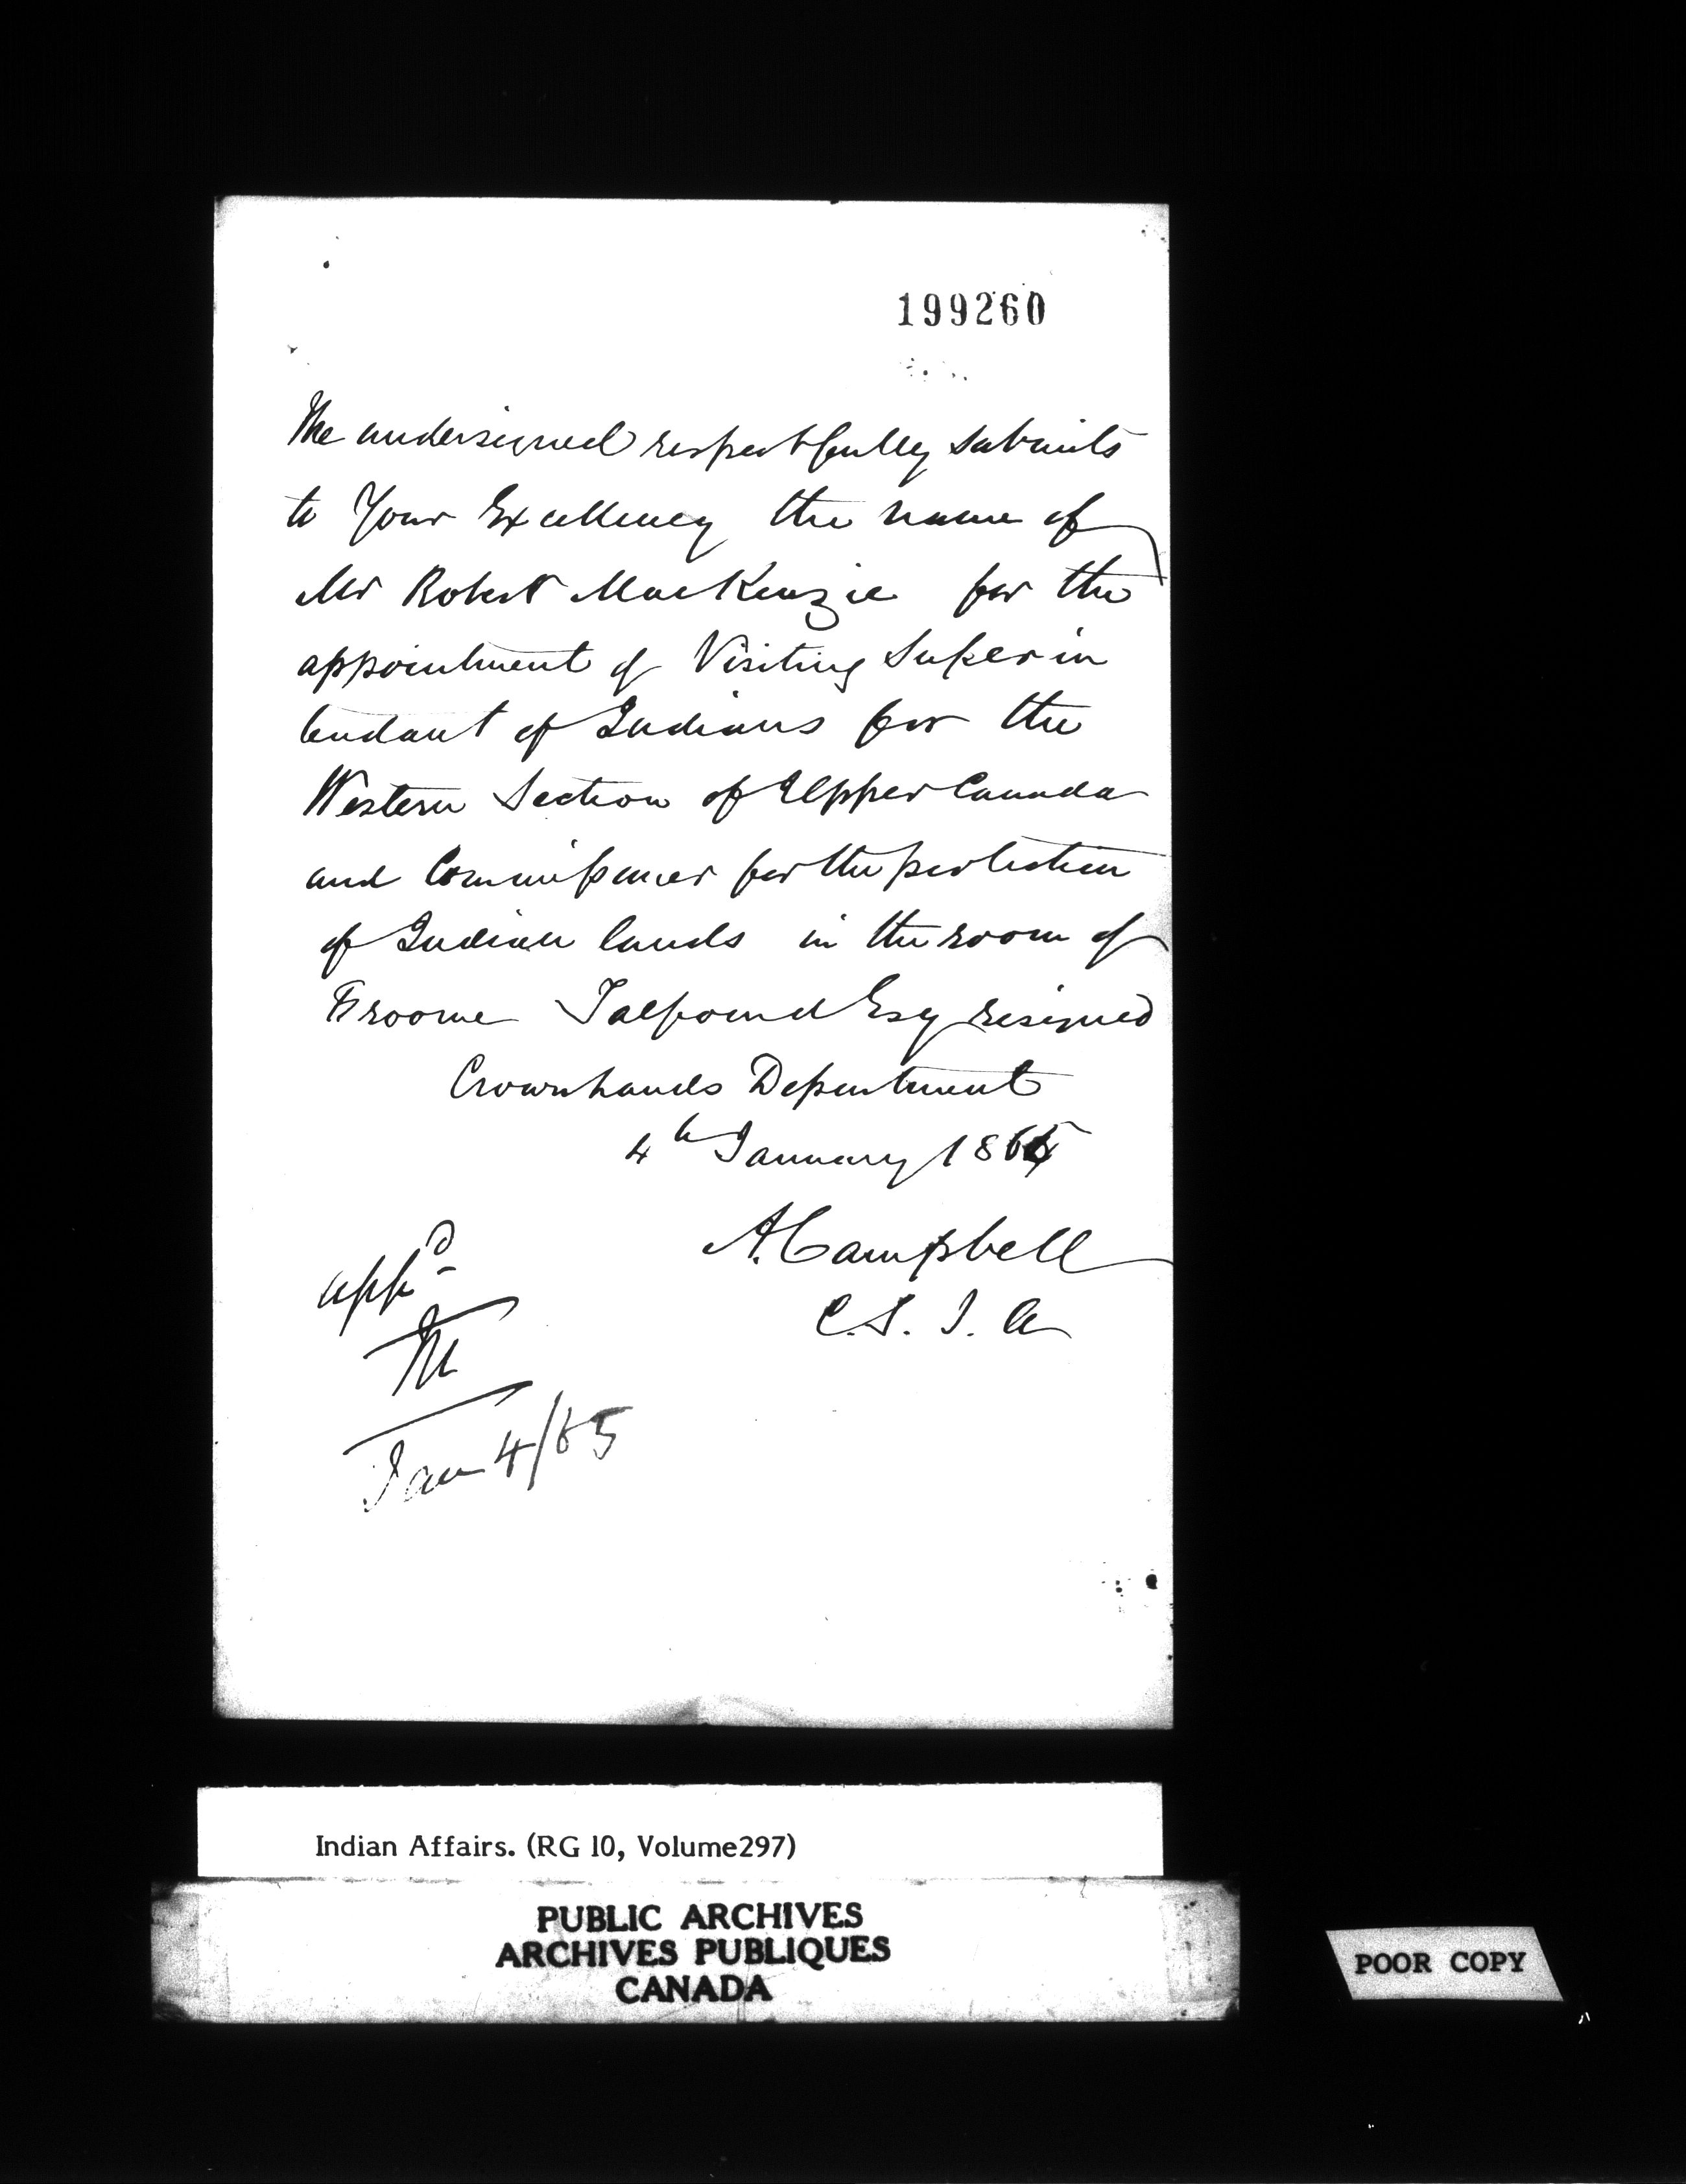 199260
The undersigned respectfully submits
to Your Excellency the name of
Mr Robert MacKenzie for the
appointment of Visiting Superin
tendant of Indians for the
Western Section of Upper Canada
and Commissioner for the protection
of Indian lands in the room of
Froome Talfourd Esq resigned
Crown Lands Department
4th January 1865
A. Campbell
C. S. I. A
appd
M
Jan 4/65
Indian Affairs. (RG 10, Volume297)
PUBLIC ARCHIVES
ARCHIVES PUBLIQUES
CANADA
POOR COPY